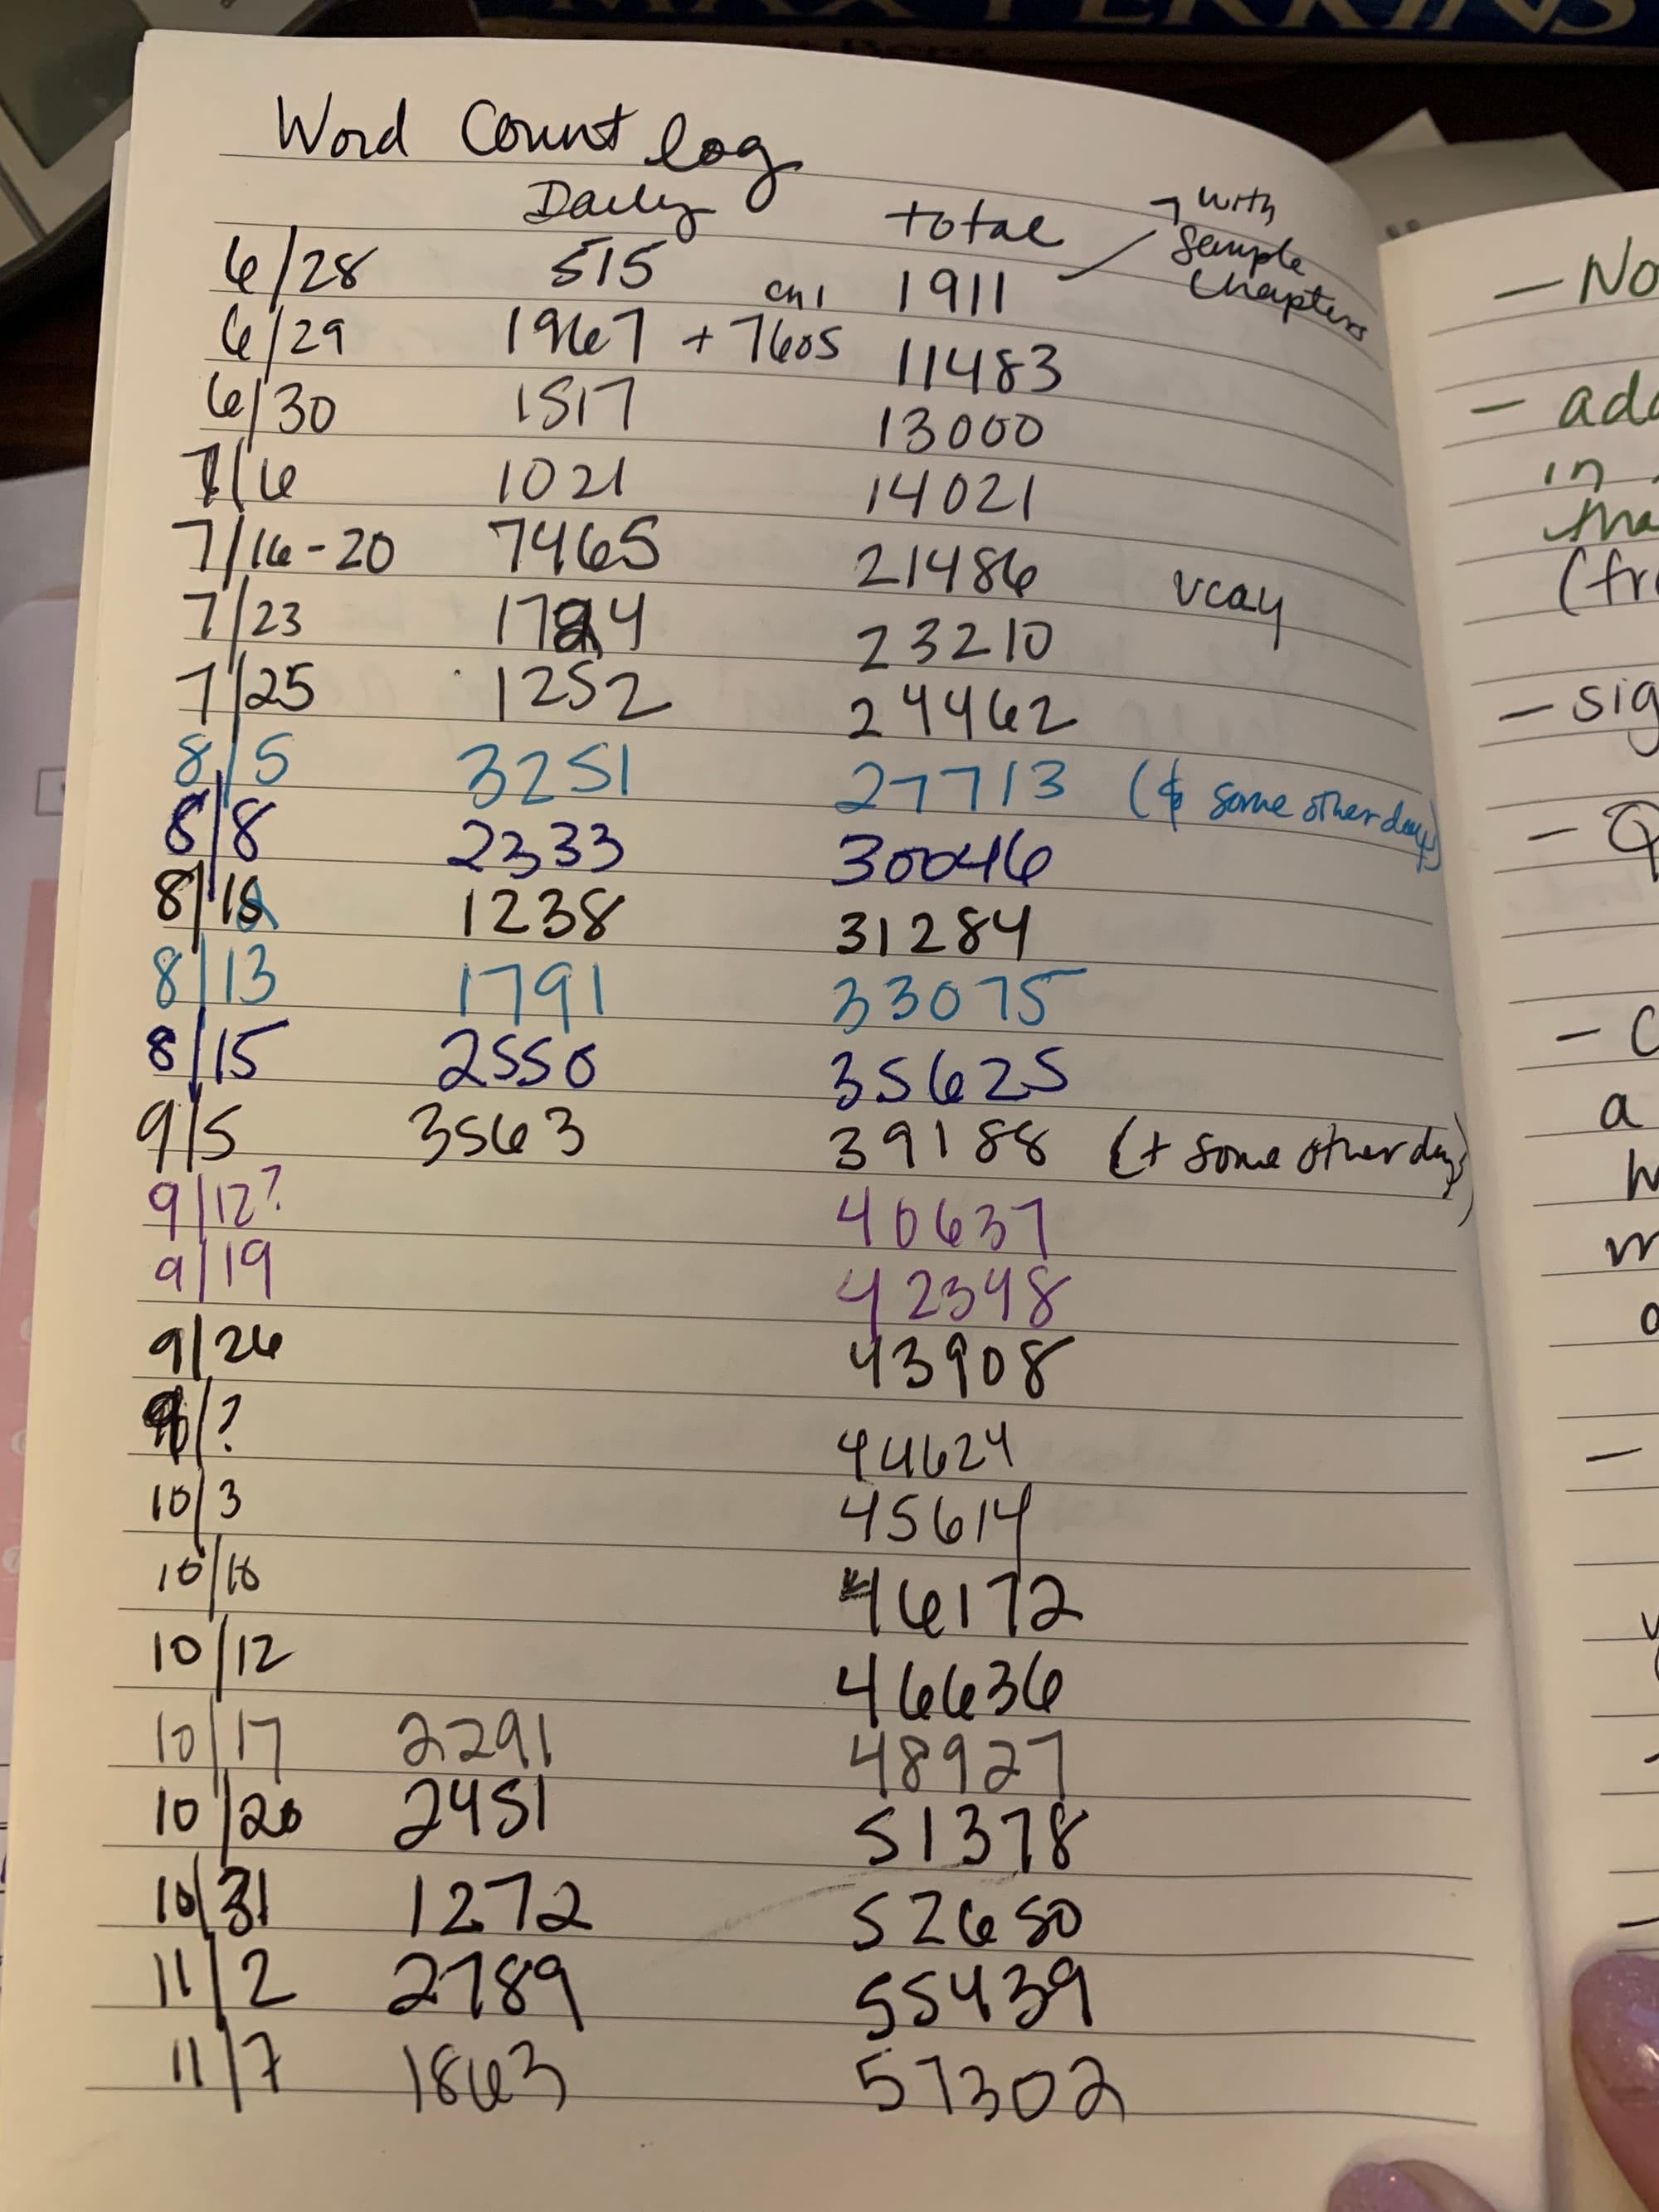 MAX PERKINS
Word Count log
Daily total → with
Sample
Chapters
6/28 515 1911
6/29 1967 + ch 1 7605 11483
6/30 1517 13000
7/6 1021 14021
7/16-20 7465 21486 vcay
7/23 1724 23210
7/25 1252 24462
8/5 3251 27713 (& some other days)
8/8 2333 30046
8/12 1238 31284
8/13 1791 33075
8/15 2550 35625
9/5 3563 39188 (+ some other days)
9/12? 40637
9/19 42398
9/26 43908
9/? 44624
10/3 45614
10/10 46172
10/12 46636
10/17 2291 48927
10/20 2451 51378
10/31 1272 52650
11/2 2789 55439
11/7 1863 57302
— No
— add
in
tha
(fr
— sig
— Q
— C
a